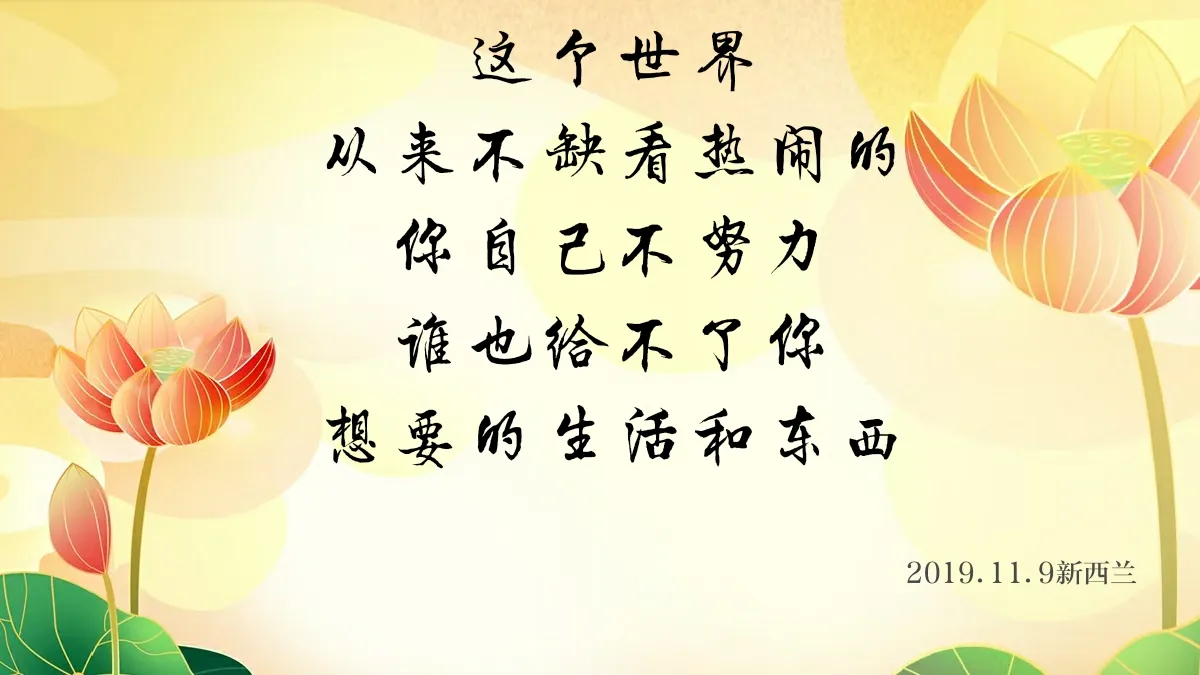 这个世界
从来不缺看热闹的
你自己不努力
谁也给不了你
想要的生活和东西
2019.11.9新西兰